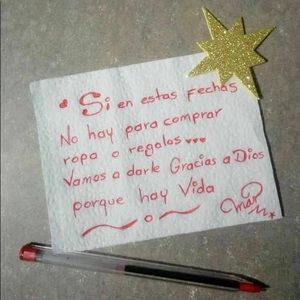 Si en estas fechas
No hay para comprar
ropa o regalos
Vamos a darle Gracias a Dios
porque hay Vida